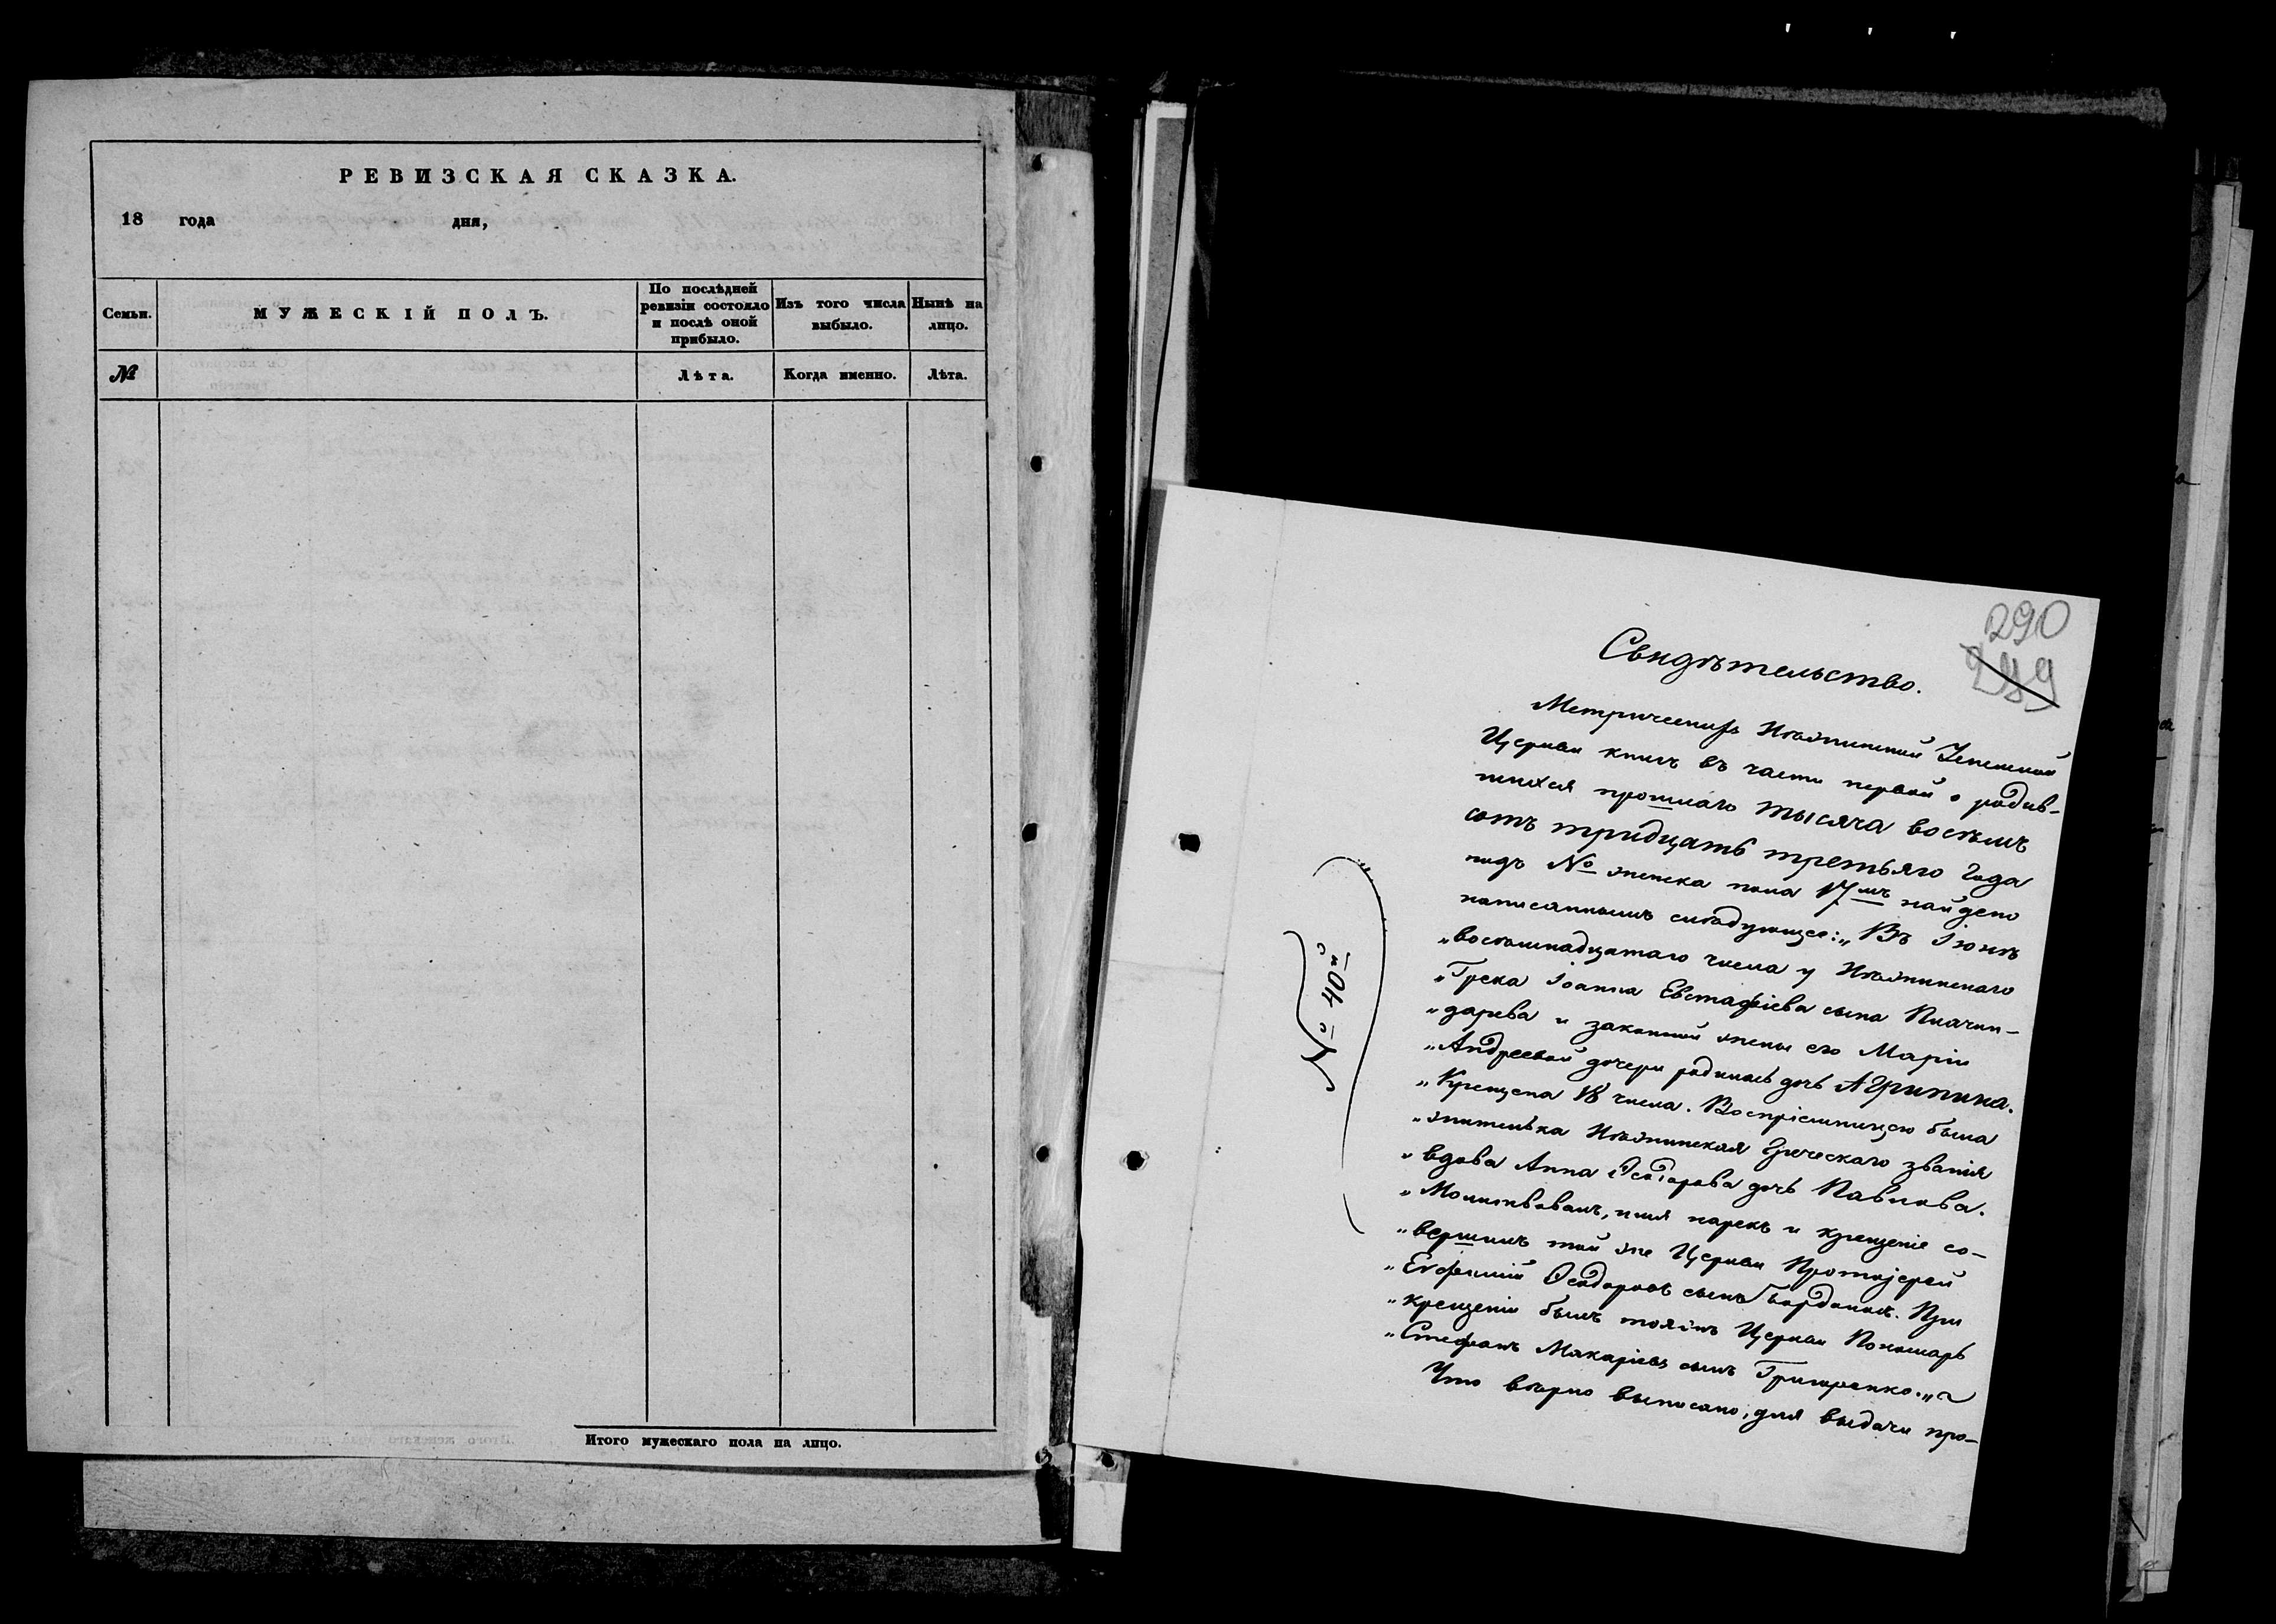 РЕВИЗСКАЯ СКАЗКА.
18 года дня,
Семьи.
МУЖЕСКІЙ ПОЛЪ.
По послѣдней
ревизіи состояло
и послѣ оной
прибыло.
Изъ того числа
выбыло.
Нынѣ на
лицо.
№
Лѣта.
Когда именно.
Лѣта.
Итого мужескаго пола на лицо.
290
Свидѣтельство.
Метрическихъ Нѣжинской Греческой
Церкви книгъ въ части первой о родив-
шихся прошлаго тысяча восѣмъ
сотъ тридцать третьяго года
подъ № женска пола 17мъ найдено
написаннымъ слѣдующее: „Въ Іюнѣ
„восѣмнадцатаго числа у Нѣжинскаго
„Грека Іоанна Евстафіева сына
„ и законной жены его Маріи
„Андреевой дочери родилась дочь Агрипина.
„Крещена 18 числа. Воспріемницею была
„жителька Нѣжинская Греческаго званія
„вдова Анна Ѳеодорова дочь Павлова.
„Молитвовалъ, имя нарекъ и крещеніе со-
„вершилъ той же Церкви Протоіерей
„Евфимій Ѳеодоровъ сынъ . При
„крещеніи былъ тояжъ Церкви Пономарь
„Стефанъ Макаріевъ сынъ Григоренко.„
Что вѣрно выписано, для выдачи про-
№ 40й